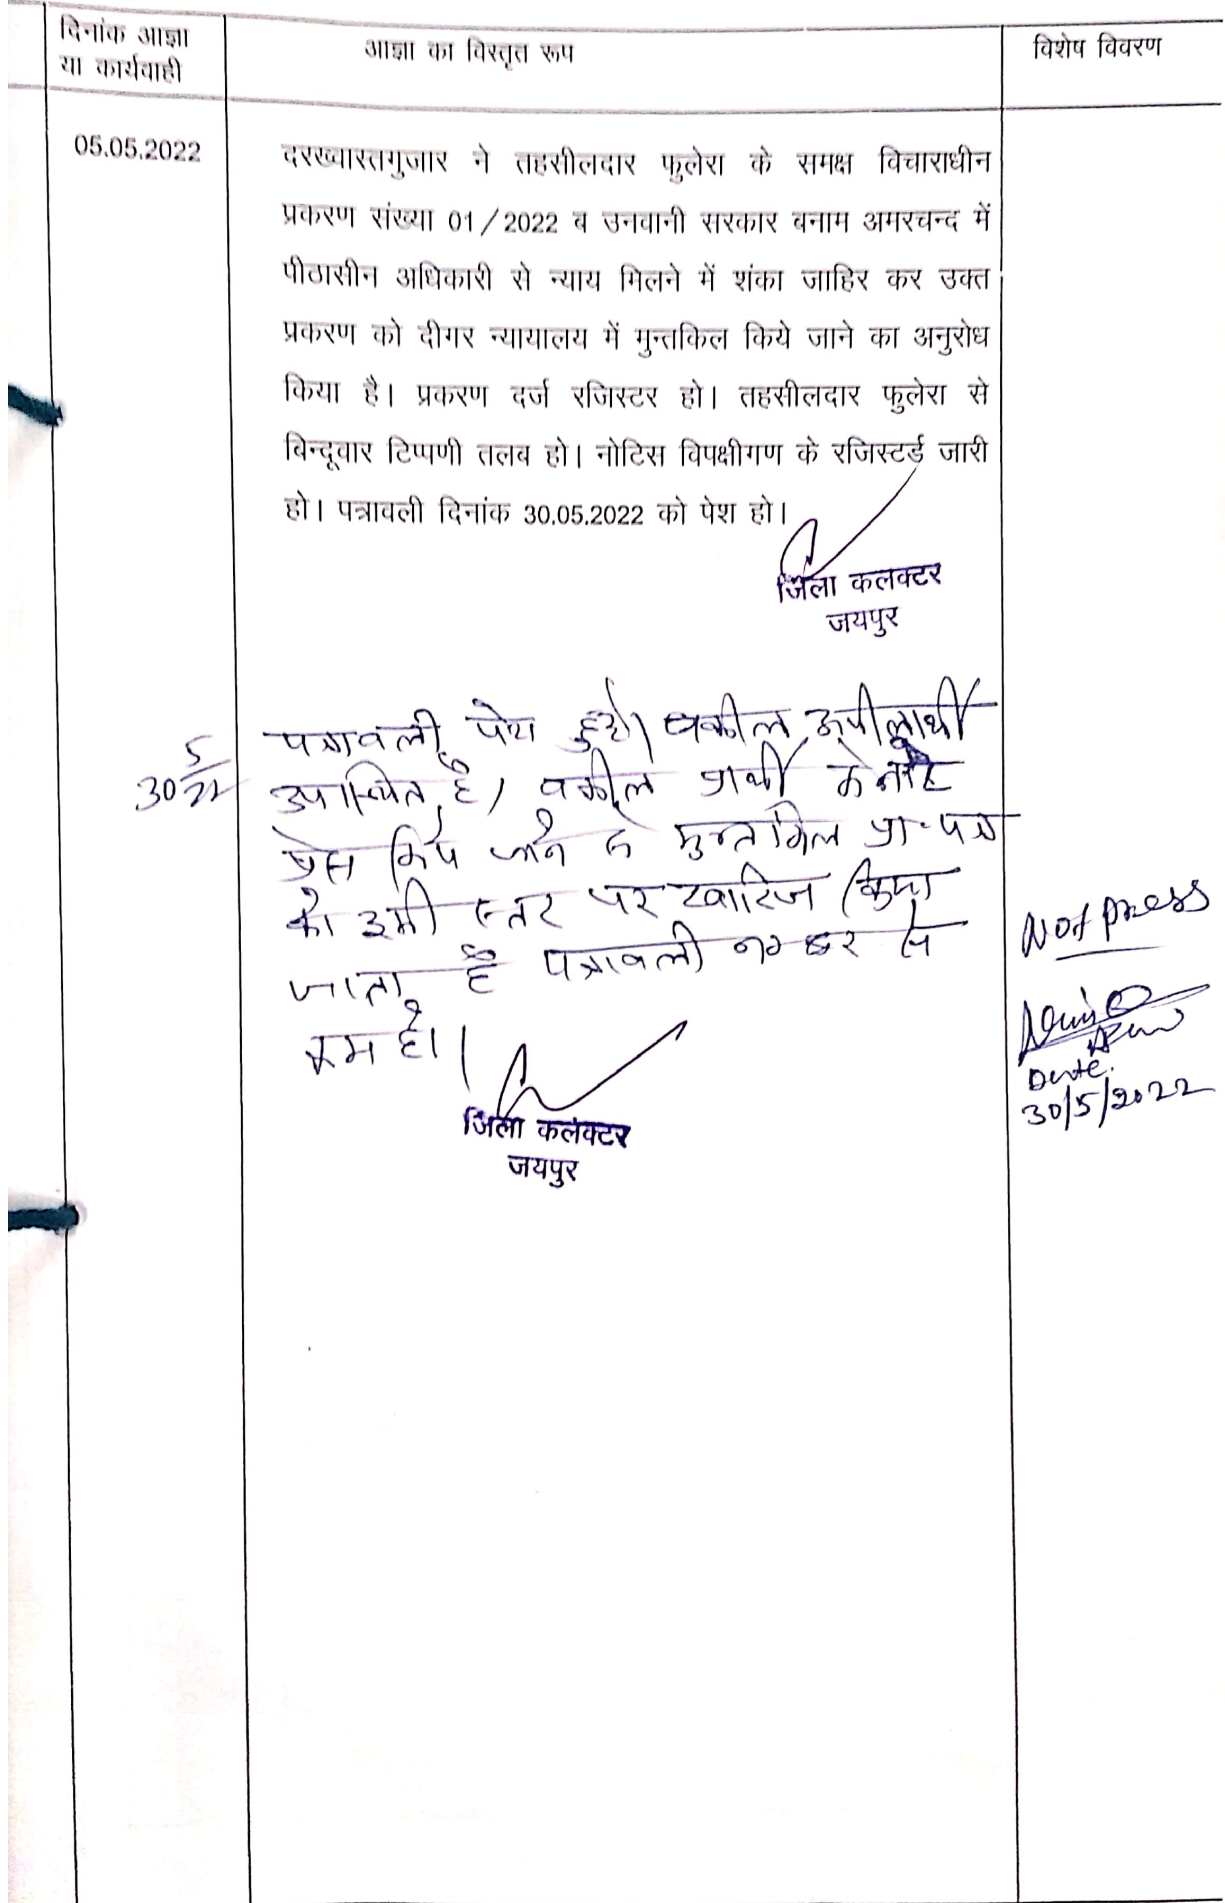 दिनांक आज्ञा
या कार्यवाही
आज्ञा का विस्तृत रूप
विशेष विवरण
05.05.2022
दरख्वास्तगुजार ने तहसीलदार फुलेरा के समक्ष विचाराधीन
प्रकरण संख्या 01/2022 ब उनवानी सरकार बनाम अमरचन्द में
पीठासीन अधिकारी से न्याय मिलने में शंका जाहिर कर उक्त
प्रकरण को दीगर न्यायालय में मुन्तकिल किये जाने का अनुरोध
किया है। प्रकरण दर्ज रजिस्टर हो। तहसीलदार फुलेरा से
बिन्दूवार टिप्पणी तलब हो। नोटिस विपक्षीगण के रजिस्टर्ड जारी
हो। पत्रावली दिनांक 30.05.2022 को पेश हो।
जिला कलक्टर
जयपुर
30 5/22
पत्रावली पेश हुई। वकील अपीलार्थी
उपस्थित है। वकील प्रार्थी के
प्रेस किये जाने से मुन्तकिल प्रा-पत्र
को इसी स्तर पर खारिज किया
जाता है पत्रावली नम्बर से
कम हो।
जिला कलक्टर
जयपुर
Not press
Date.
30/5/2022